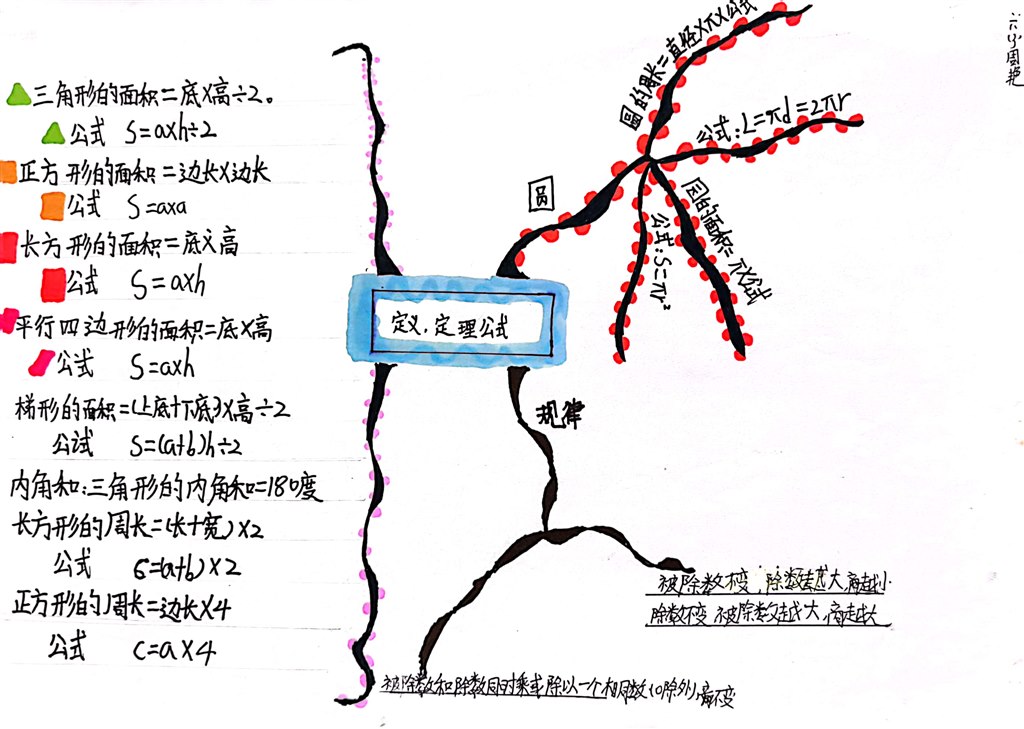 三角形的面积=底×高÷2。
公式 S=a×h÷2
正方形的面积=边长×边长
公式 S=a×a
长方形的面积=底×高
公式 S=a×h
平行四边形的面积=底×高
公式 S=a×h
梯形的面积=(上底+下底)×高÷2
公试 S=(a+b)h÷2
内角和:三角形的内角和=180度
长方形的周长=(长+宽)×2
公式 C=(a+b)×2
正方形的周长=边长×4
公式 C=a×4
定义,定理公式
圆
圆的周长=直径×π×公式
公式:L=πd=2πr
圆的面积=π×公试
公式:S=πr²
规律
被除数不变,除数越大,商越小
除数不变 被除数越大,商越大
被除数和除数同时乘或除以一个相同数(0除外),商不变